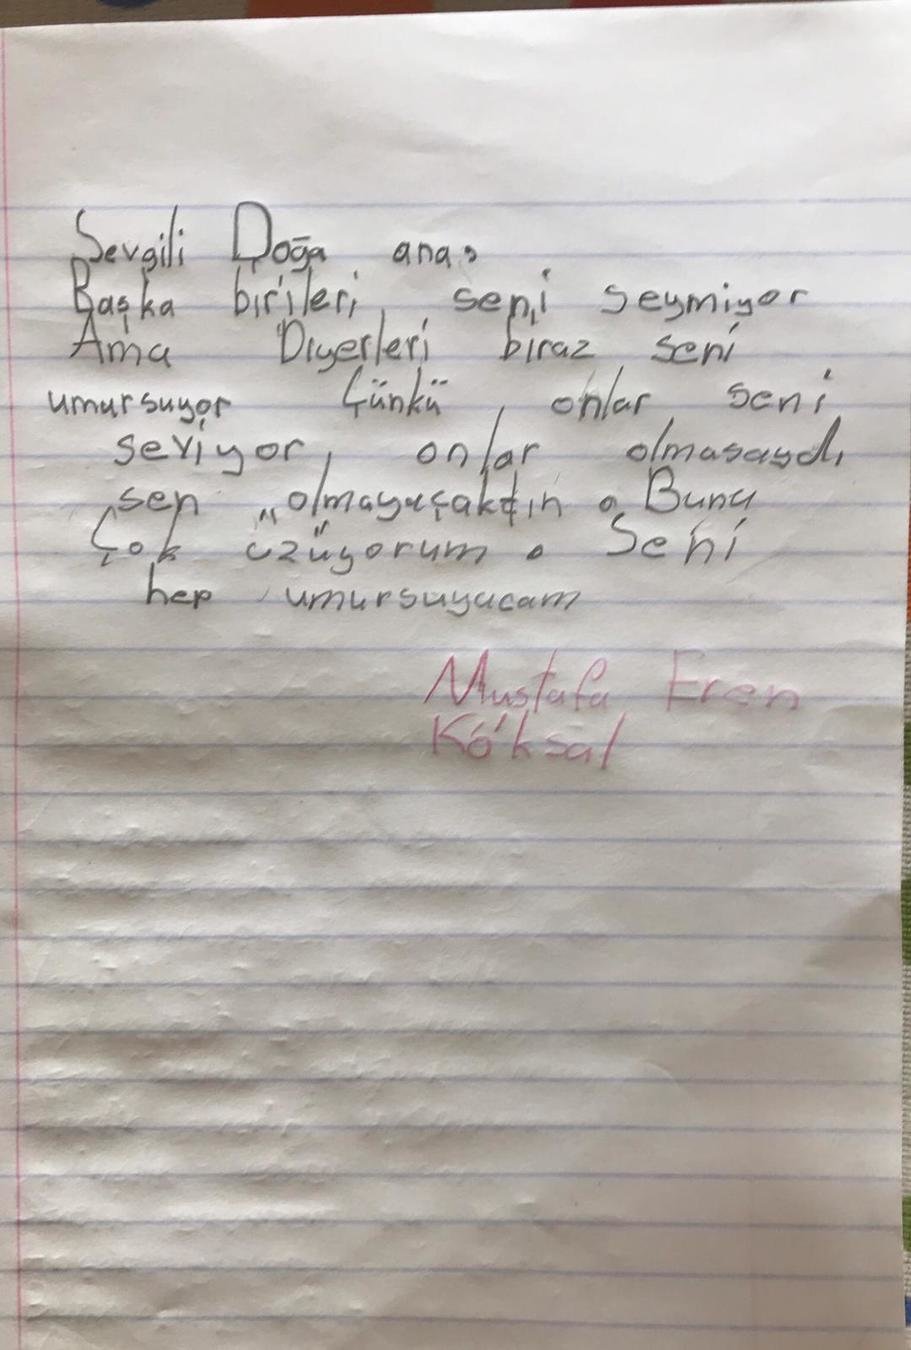 Sevgili Doğa ana,
Başka birileri, seni seymiyor
Ama Diyerleri biraz seni
umursuyor Çünkü, onlar seni
seviyor, onlar olmasaydı
sen olmayacaktın. Buna
Çok üzüyorum. Seni
hep umursuyacam
Mustafa Eren
Köksal